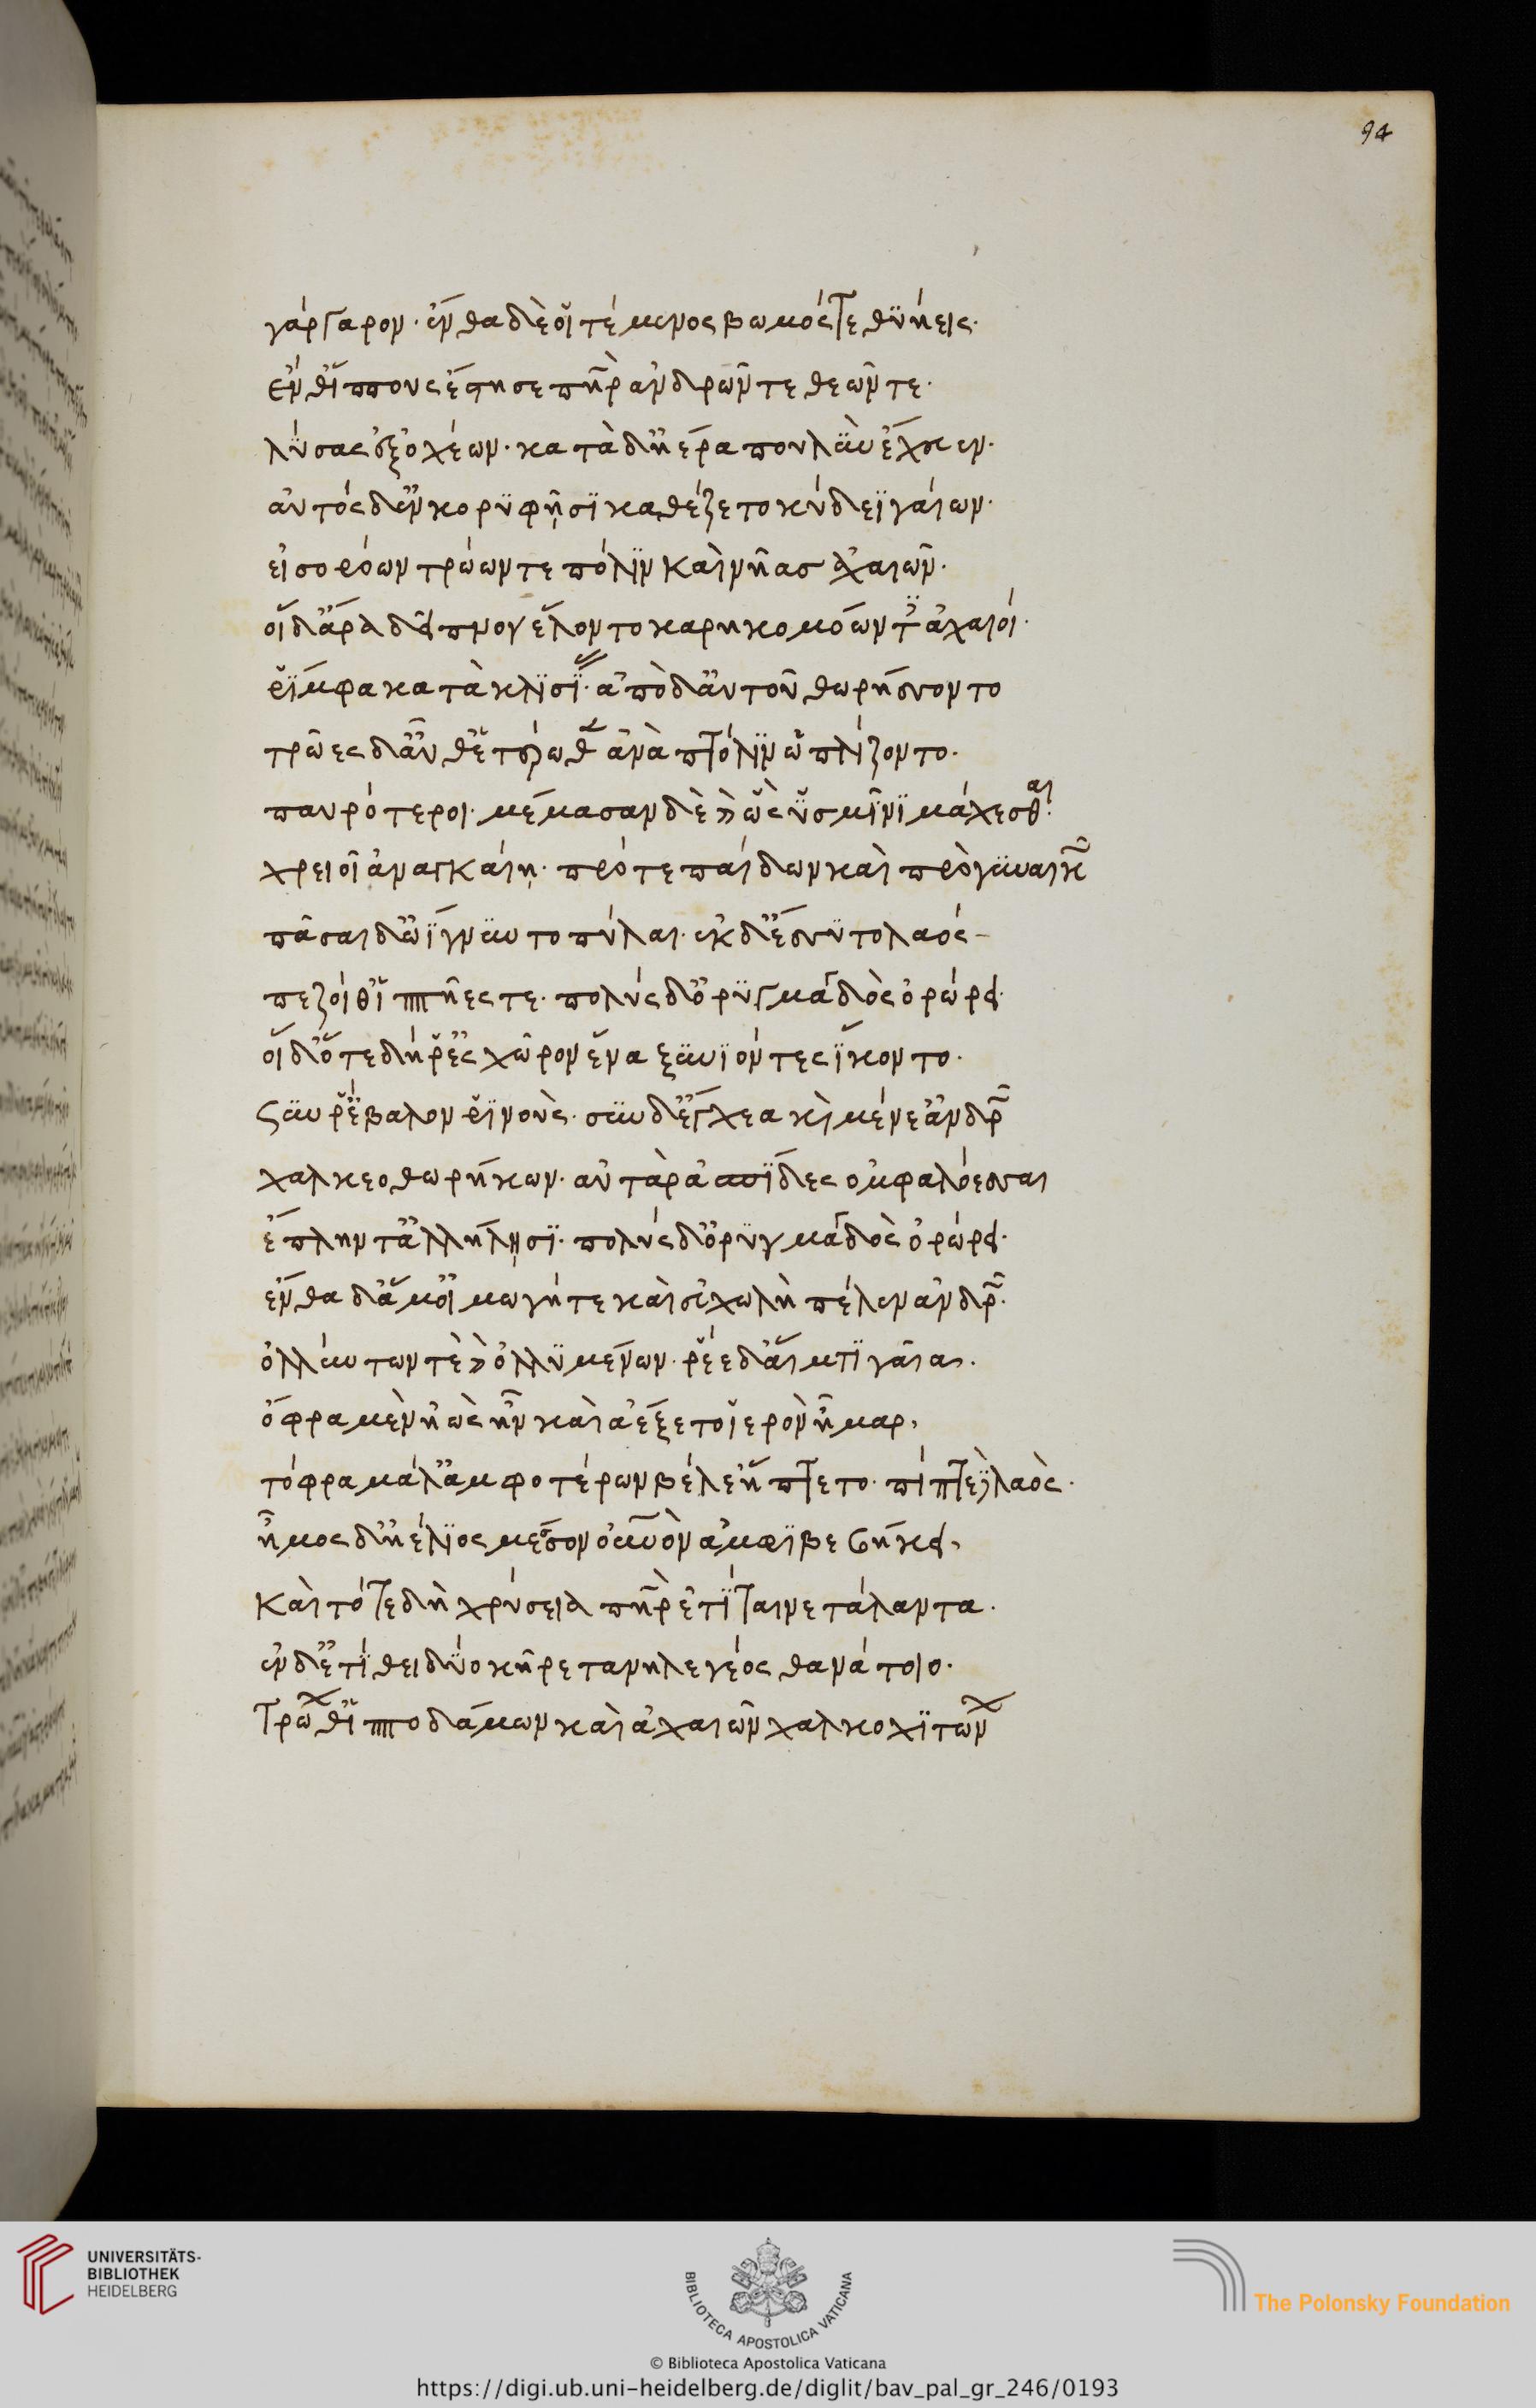 94
γάργαρον· ἔνθα δὲ οἱ τέμενος βωμός τε θϋήεις·
ἔνθ' ἵππους ἔστησε πατὴρ ἀνδρῶν τε θεῶν τε·
λύσας ἐξ ὀχέων· κατὰ δ' ἠέρα πουλὺν ἔχευεν·
αὐτὸς δ' ἐν κορϋφῆσϊ καθέζετο κύδεϊ γαίων·
εἰσορόων τρώων τε πόλϊν καὶ νῆας ἀχαιῶν·
οἱ δ' ἄρα δεῖπνον ἕλοντο καρηκομόωντ̈ ἀχαιοί·
ῥίμφα κατὰ κλϊσϊ· ἀπὸ δ' αὐτοῦ θωρήσσοντο
τρῶες δ' αὖθ' ἑτέρωθ ἀνὰ πτόλϊν ὡπλίζοντο·
παυρότεροι· μέμασαν δὲ καὶ ὣς ὑσμῖνϊ μάχεσθαι·
χρειοῖ ἀναγκαίη· πρό τε παίδων καὶ πρὸ γϋναικῶν
πᾶσαι δ' ὠΐγνϋντο πύλαι· ἐκ δ' ἔσσϋτο λαός
πεζοί θ' ἱππῆες τε· πολὺς δ' ὀρϋμαγδὸς ὀρώρει·
οἱ δ' ὅτε δή ῥ' ἐς χῶρον ἕνα ξϋνϊόντες ἵκοντο·
σϋν ῥ' ἔβαλον ῥϊνοὺς· σϋν δ' ἔγχεα κὶ μένε' ἀνδρῶν
χαλκεοθωρήκων· αὐτὰρ ἀσπίδες ὀμφαλόεσσαι
ἔπληντ' ἀλλήλῃσϊ· πολὺς δ' ὀρϋμαγδὸς ὀρώρει·
ἔνθα δ' ἅμ' οἰμωγή τε καὶ εὐχωλὴ πέλεν ἀνδρῶν·
ὀλλύντων τὲ καὶ ὀλλϋμένων· ῥέε δ' αἵματϊ γαῖα·
ὄφρα μὲν ἠὼς ἦν καὶ ἀέξετο ἱερὸν ἦμαρ,
τόφρα μάλ' ἀμφοτέρων βέλε' ἥπτετο· πίπτε δὲ λαὸς·
ἦμος δ' ἠέλϊος μέσον οὐρανὸν ἀμφϊβεβήκει,
καὶ τότε δὴ χρύσεια πατὴρ ἐτίταινε τάλαντα·
ἐν δ' ἐτίθει δύο κῆρε τανηλεγέος θανάτοιο·
Τρώων θ' ἱπποδάμων καὶ ἀχαιῶν χαλκοχϊτώνων
UNIVERSITÄTS-
BIBLIOTHEK
HEIDELBERG
BIBLIOTECA APOSTOLICA VATICANA
The Polonsky Foundation
© Biblioteca Apostolica Vaticana
https://digi.ub.uni-heidelberg.de/diglit/bav_pal_gr_246/0193